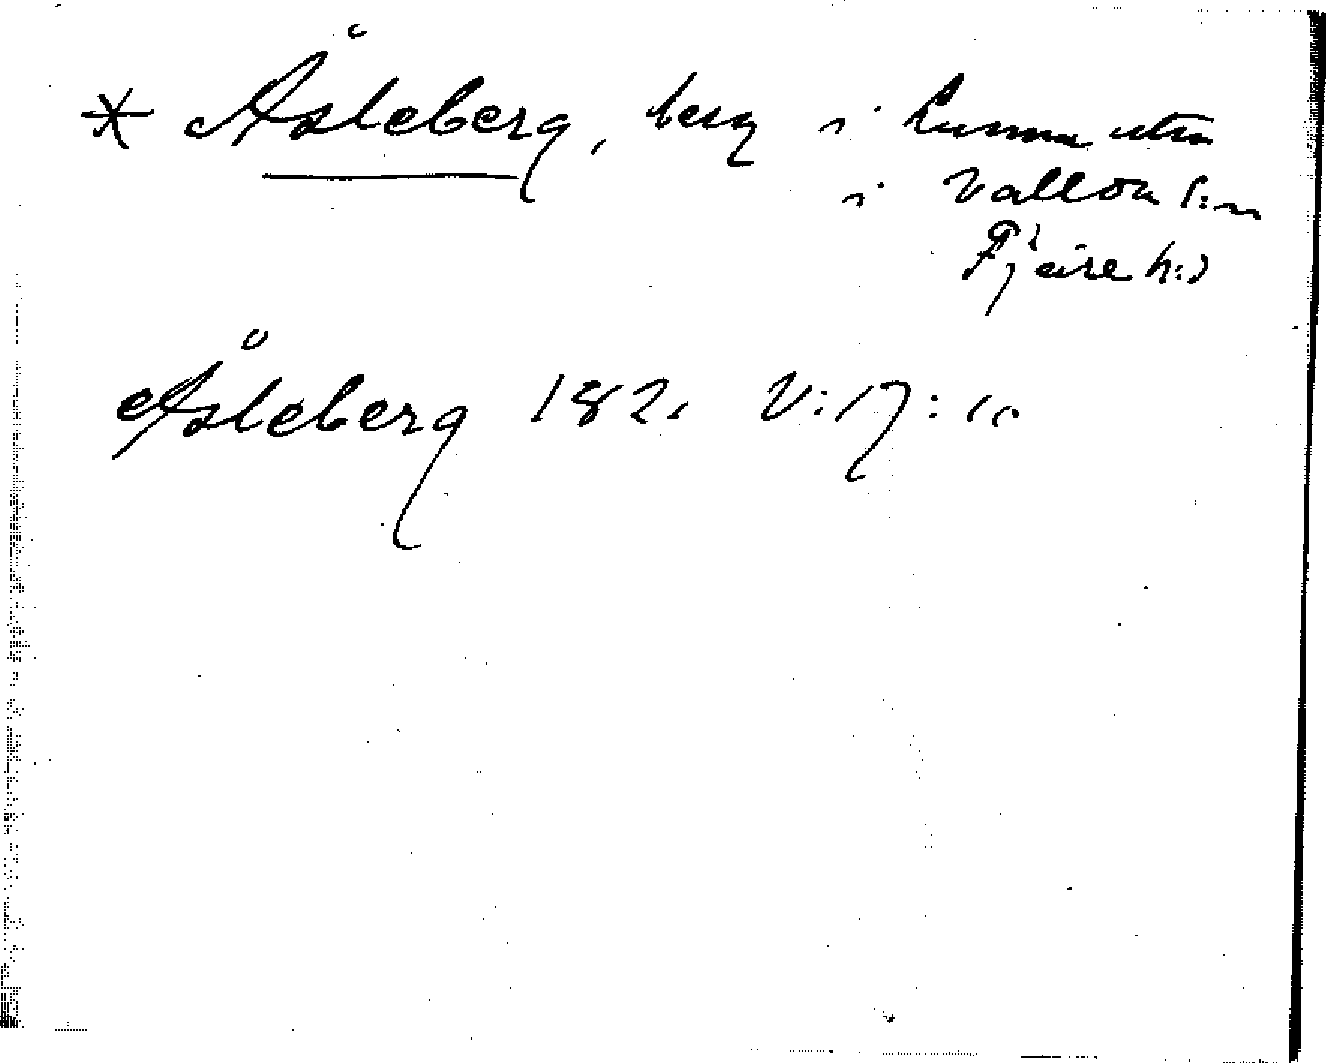 * Åsleberg, berg i Lunna utm
i Vallda s:n
Fjäre h:d
Åsleberg 182. V:17:10